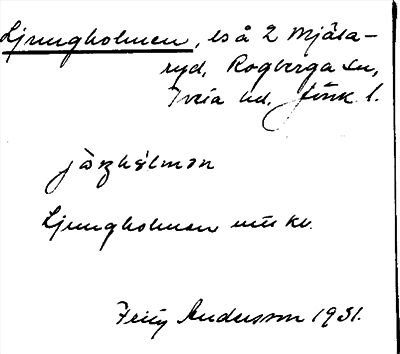 Ljungholmen, lså 2 Mjäla-
ryd, Rogberga sn,
Tveta hd, Jönk l.
jåɳhålmən
Ljungholmen kv.
Fritz Andersson 1931.